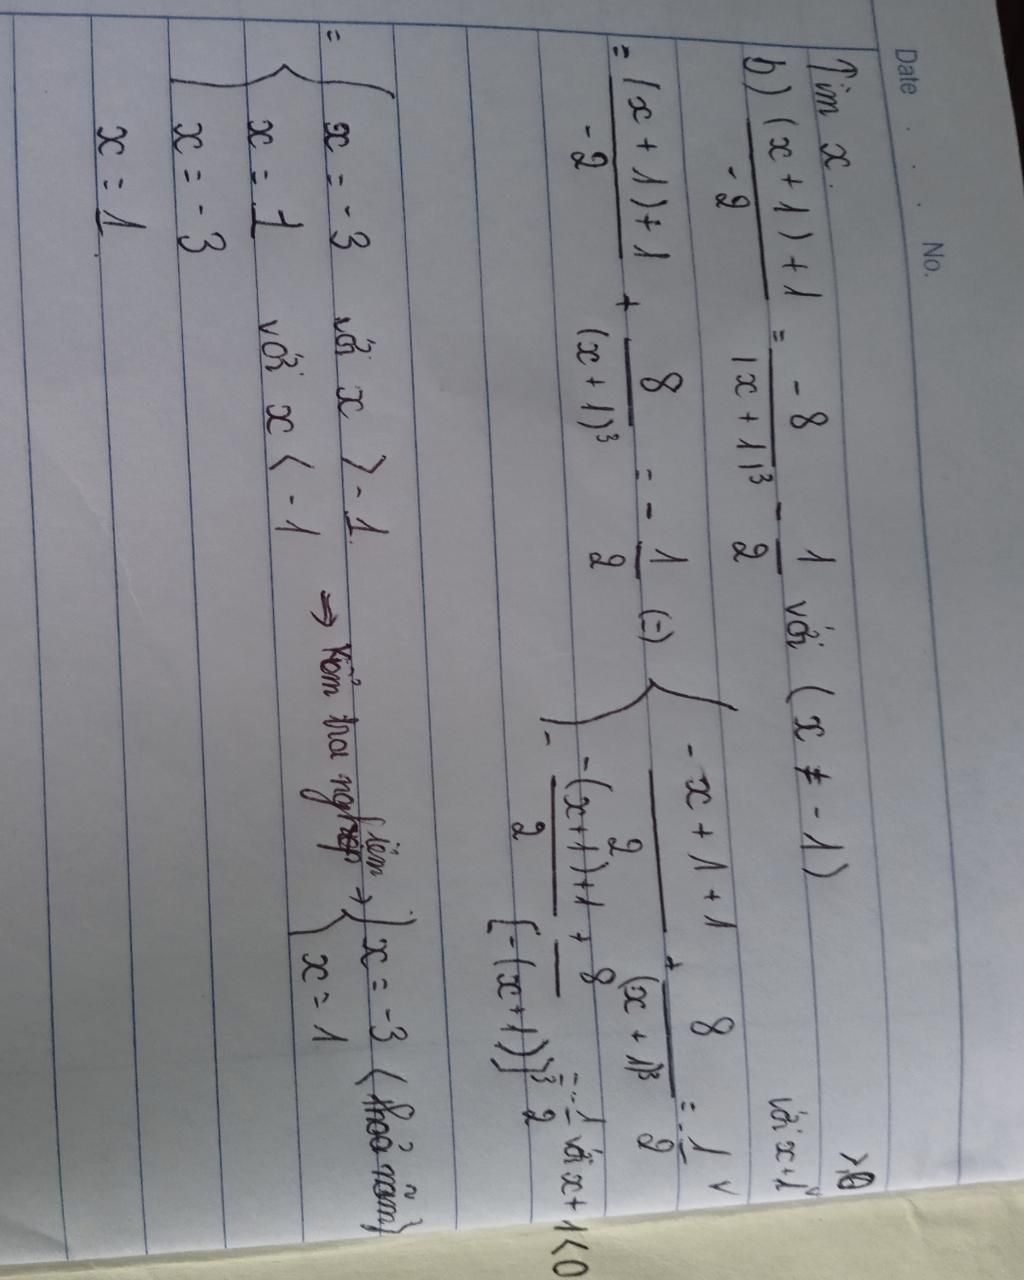 Date . . . No.
Tìm x.
b) |x+1|+1 / -2 = -8 / |x+1|³ - 1/2 với (x ≠ -1)
= |x+1|+1 / -2 + 8 / (x+1)³ = - 1/2 (=) { - x+1+1 / 2 + 8 / (x+1)³ = - 1/2 với x+1 ≥ 0
- -(x+1)+1 / 2 + 8 / [-(x+1)]³ = - 1/2 với x+1 < 0
= { x = -3 với x > -1
x = 1 với x < -1 ⇒ Kiểm tra nghiệm → { x = -3 (thoả mãn)
x = 1
x = -3
x = 1